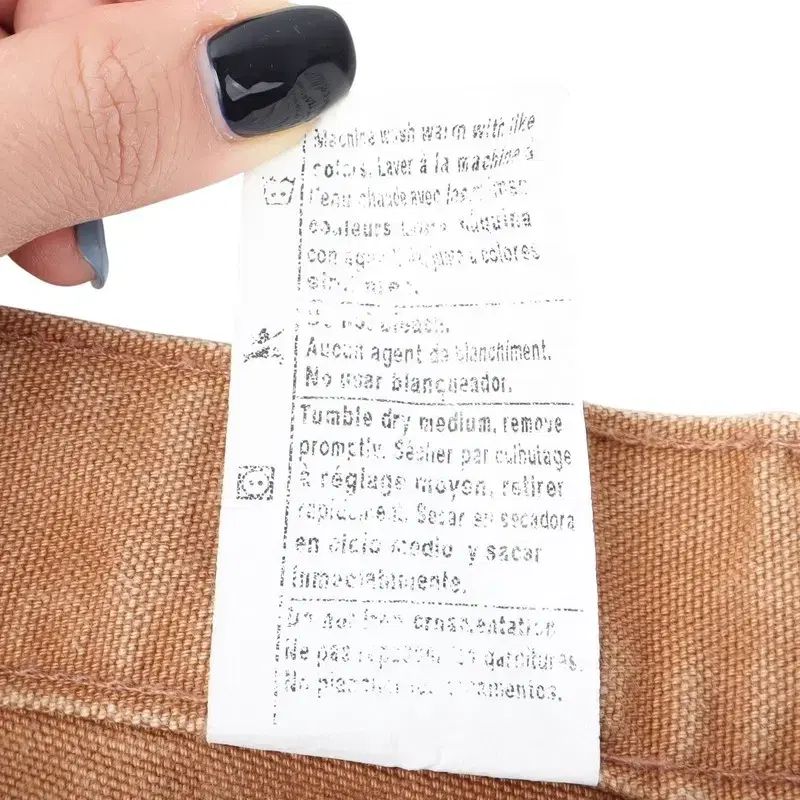 Machine wash warm with like
colors. Laver à la machine à
l'eau chaude avec les mêmes
couleurs máquina
con agua colores
Do not bleach.
Aucun agent de blanchiment.
No usar blanqueador.
Tumble dry medium, remove
promptly. Sécher par culbutage
à réglage moyen, retirer
rapidement. Secar en secadora
en ciclo medio y sacar
inmediatamente.
Do not iron ornamentation
Ne pas repasser les garnitures.
No planchar los ornamentos.